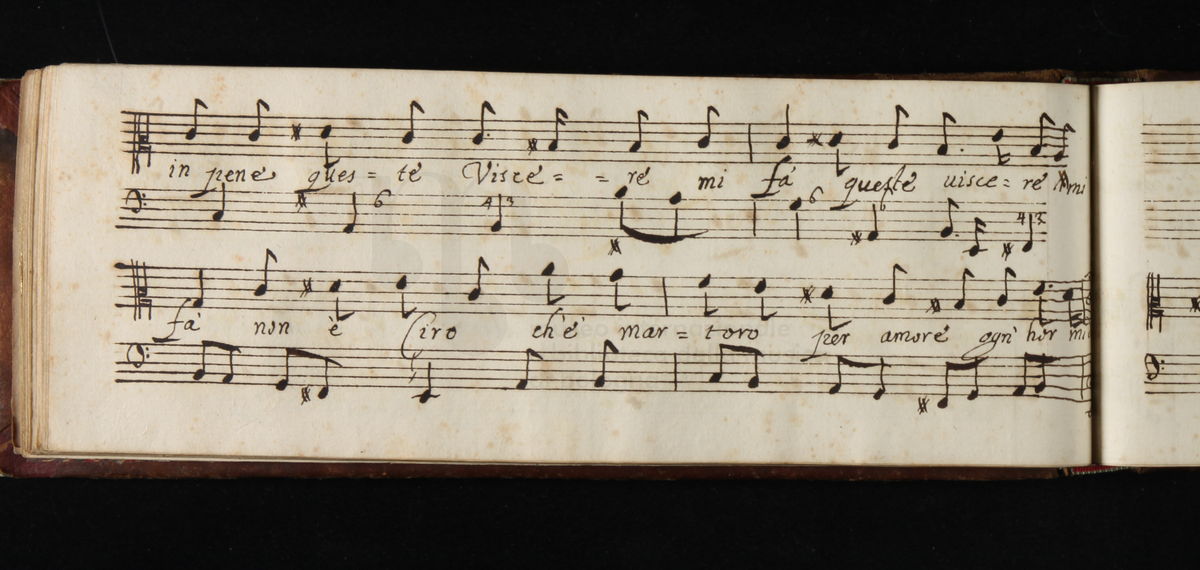 in pene ques = te Visce = = re mi fà queste visce = re mi
6 4 3 6 6 4 3
fà non è Ciro ch'è mar = toro per amore ogn' hor